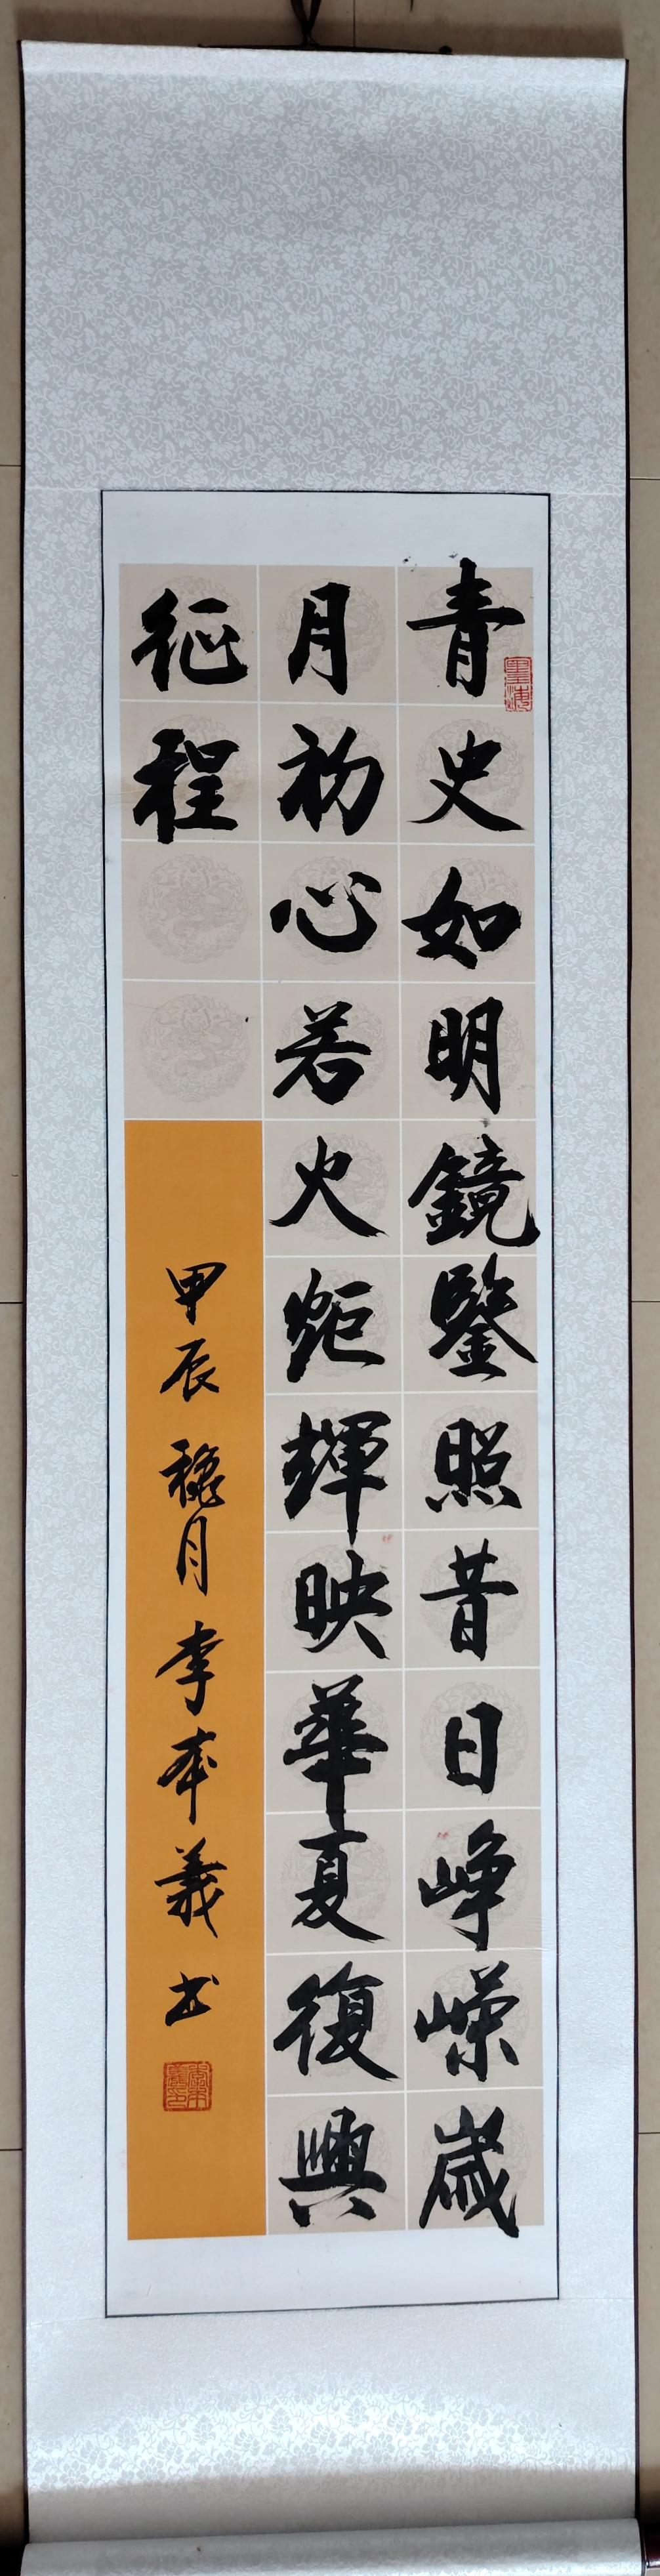 青史如明鏡鑒照昔日峥嵘歲
月初心若火炬輝映華夏復興
征程
甲辰 穐月 李本義 书
墨海